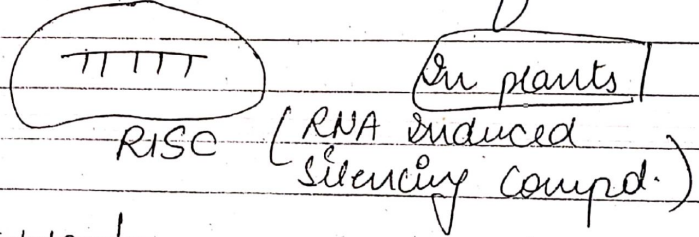 In plants
RISC (RNA induced
silencing compd.)